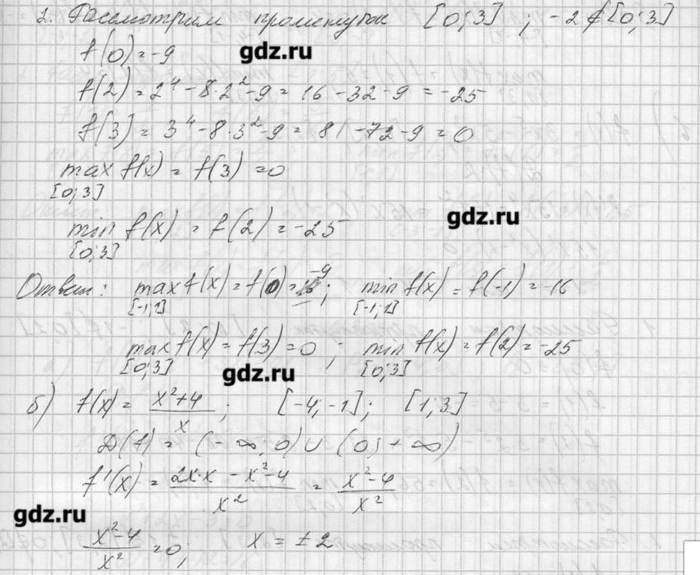 2. Рассмотрим промежуток [0;3] ; -2 ∉ [0;3]
f(0) = -9
gdz.ru
f(2) = 2⁴ - 8·2² - 9 = 16 - 32 - 9 = -25
f(3) = 3⁴ - 8·3² - 9 = 81 - 72 - 9 = 0
max f(x) = f(3) = 0
[0;3]
gdz.ru
min f(x) = f(2) = -25
[0;3]
Ответ: max f(x) = f(0) = -9 ; min f(x) = f(-1) = -16
[-1;1] [-1;1]
max f(x) = f(3) = 0 ; min f(x) = f(2) = -25
[0;3] [0;3]
gdz.ru
б) f(x) = (x²+4)/x ; [-4;-1] ; [1;3]
D(f) = (-∞; 0) ∪ (0; +∞)
f'(x) = (2x·x - x² - 4)/x² = (x² - 4)/x²
gdz.ru
(x² - 4)/x² = 0; x = ±2